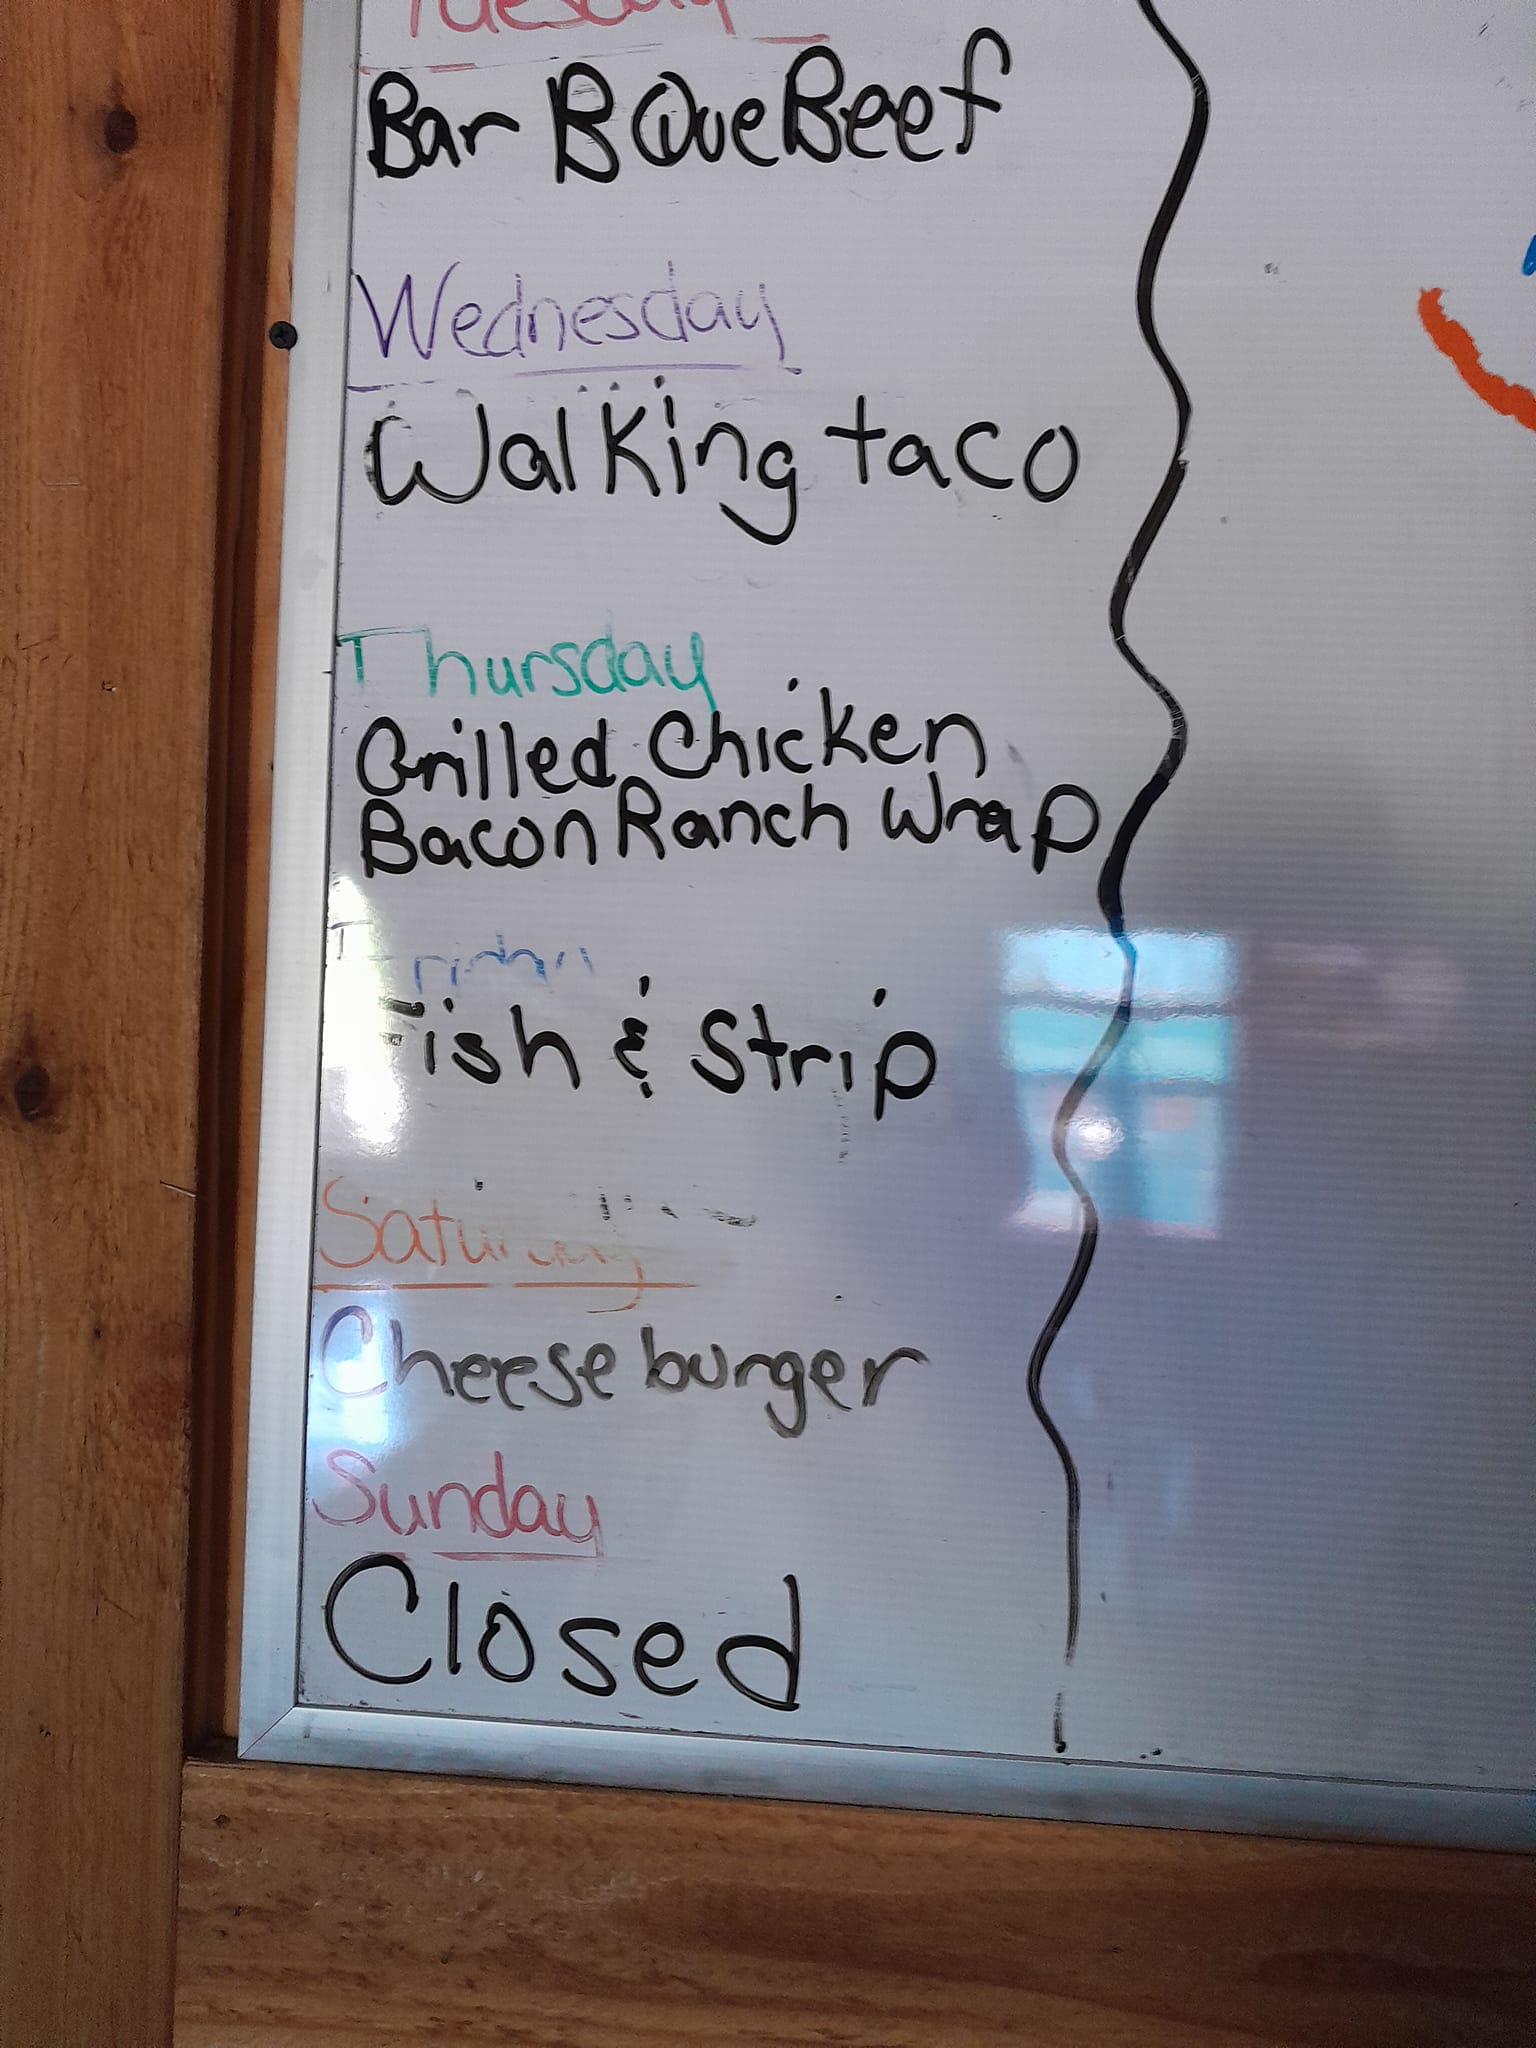 Tuesday
Bar B Que Beef
Wednesday
Walking taco
Thursday
Grilled Chicken
Bacon Ranch Wrap
Friday
Fish & Strip
Saturday
Cheese burger
Sunday
Closed